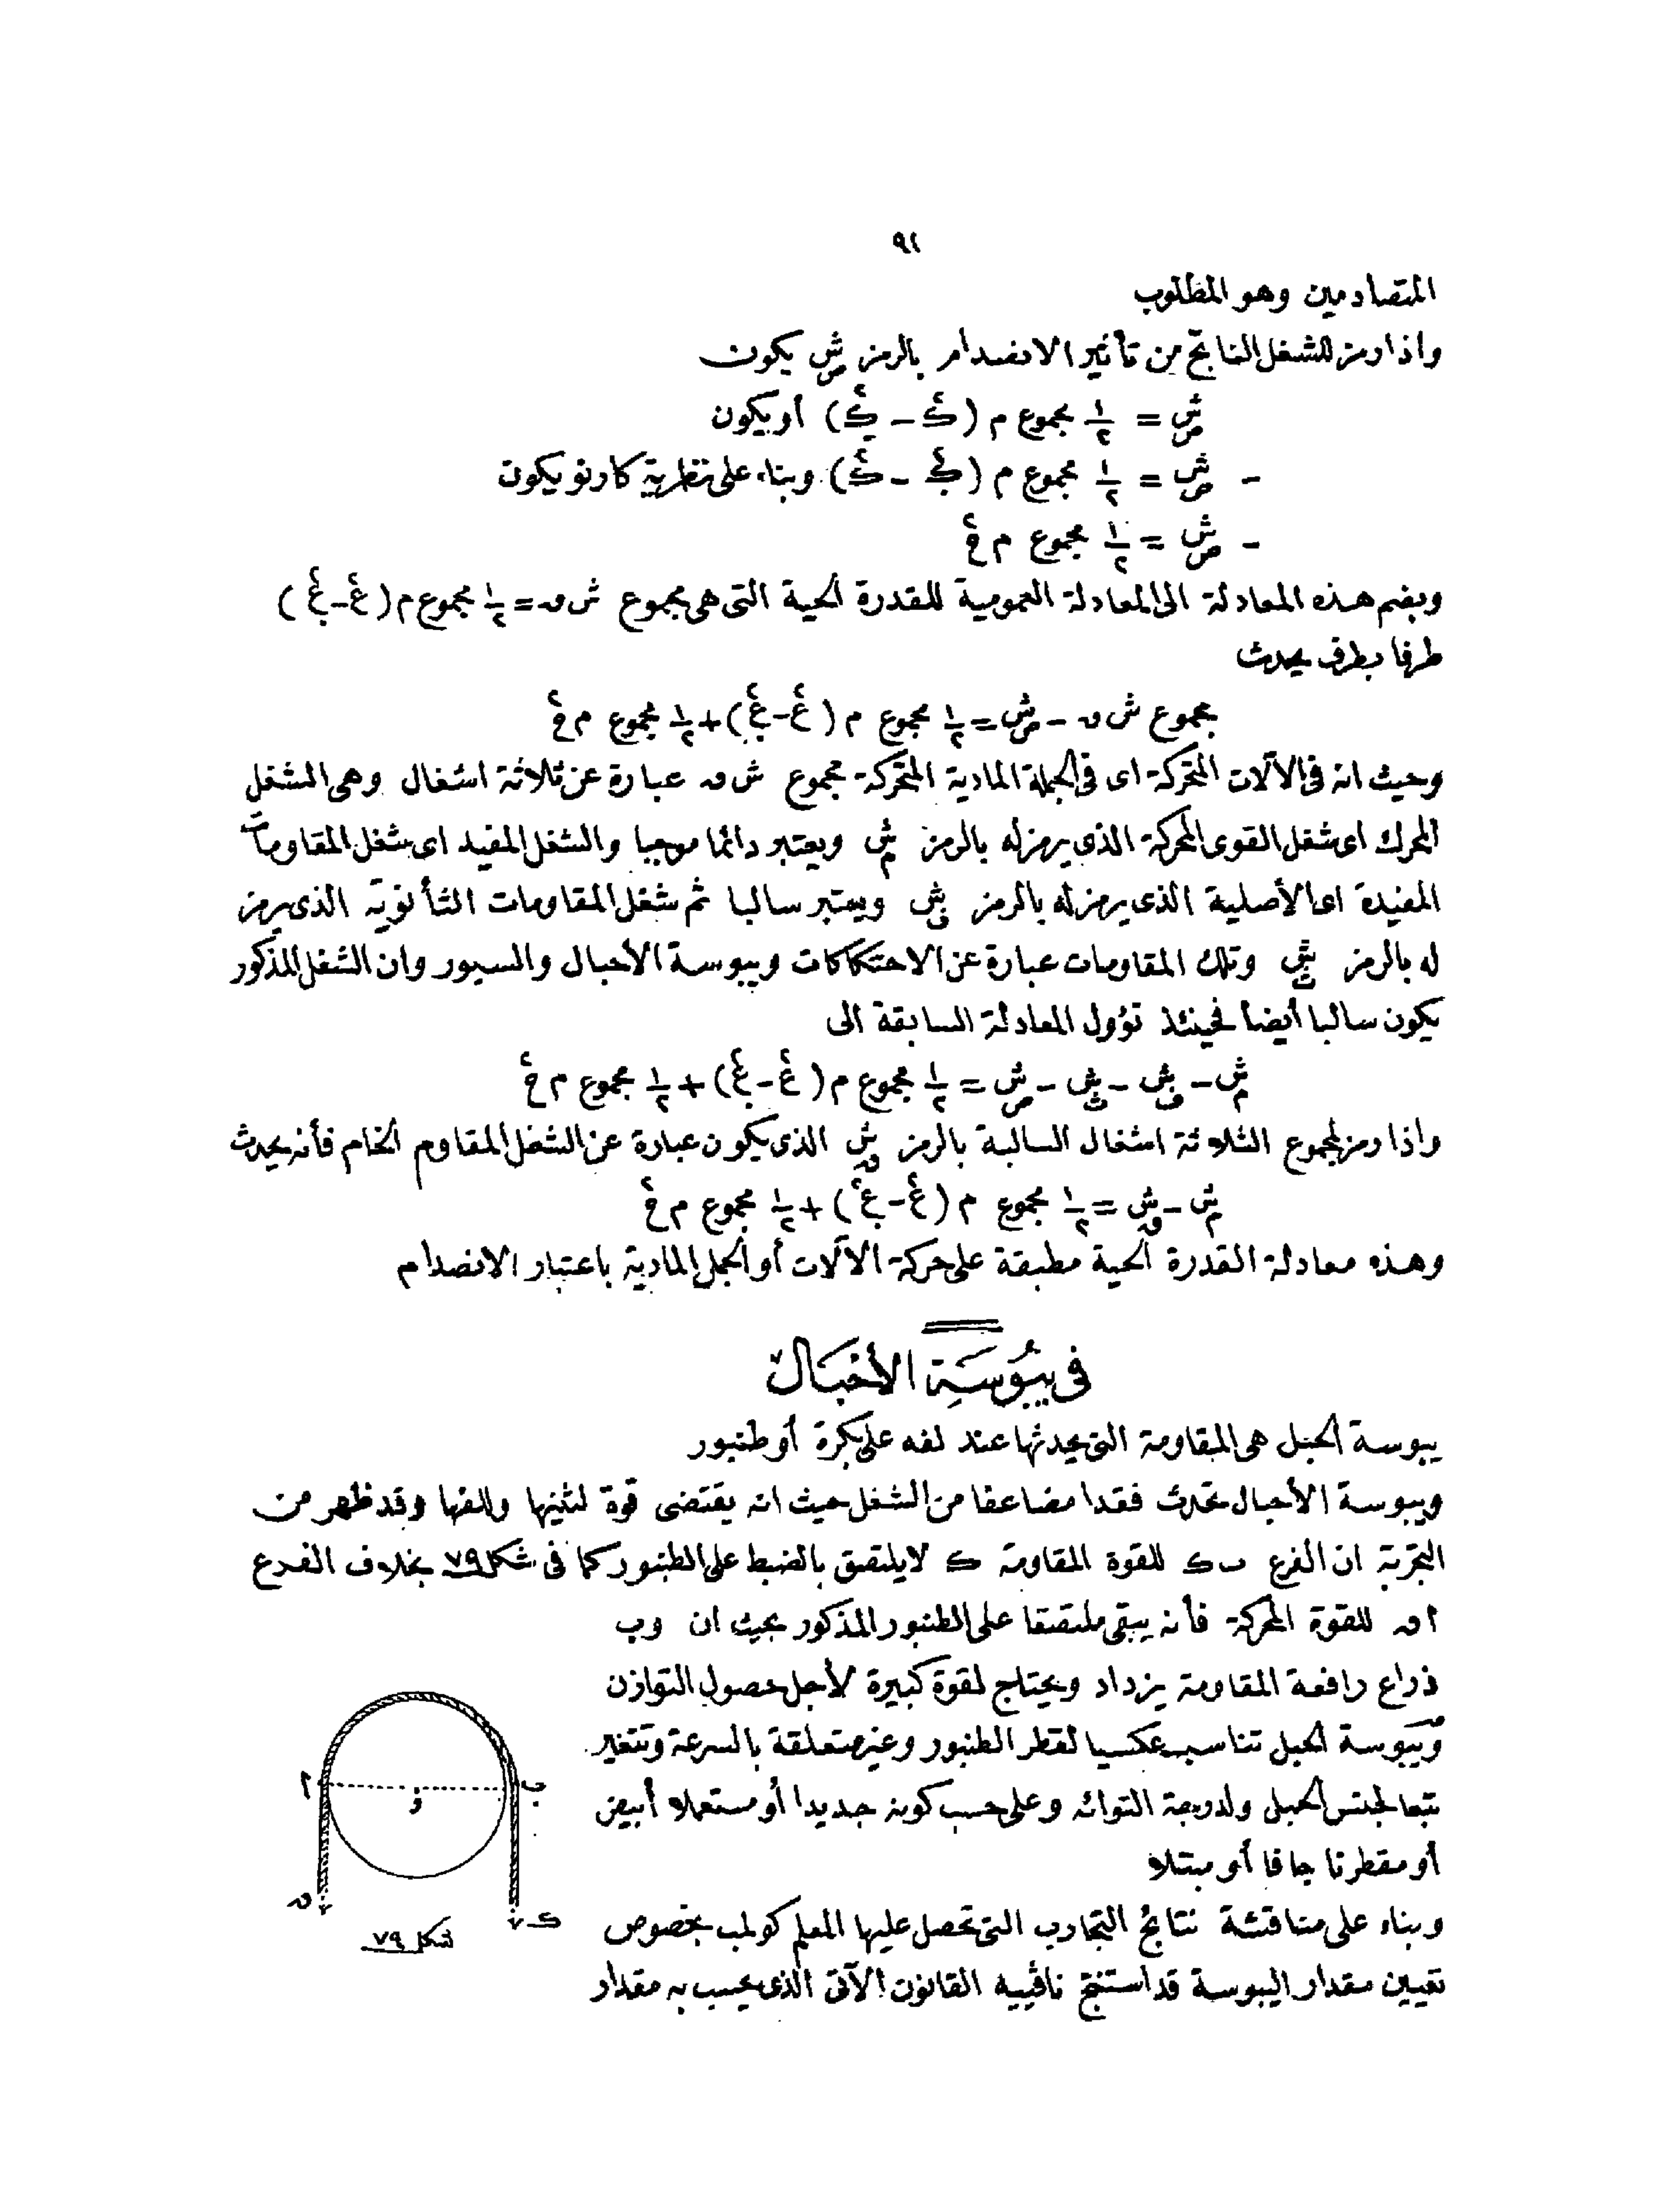 ٩٢
المتصادمين وهو المطلوب
واذا رمز للشغل الناتج من تأثير الانصدام بالرمز شص يكون
شص = ١/٢ مجموع م (ك٢ - ك٢) أو يكون
- شص = ١/٢ مجموع م (ك٢ - ك٢) وبناء على نظرية كارنو يكون
- شص = ١/٢ مجموع م ع٢
وبضم هذه المعادلة الى المعادلة العمومية للقدرة الحية التى هى مجموع ش ق = ١/٢ مجموع م (ع٢ - ع٢)
طرفا بطرف يحدث
مجموع ش ق - شص = ١/٢ مجموع م (ع٢ - ع٢) + ١/٢ مجموع م ع٢
وحيث انه فى الآلات المتحركة اى فى الجملة المادية المتحركة مجموع ش ق عبارة عن ثلاثة اشغال وهى الشغل
المحرك اى شغل القوى المحركة الذى يرمز له بالرمز شم ويعتبر دائما موجبا والشغل المفيد اى شغل المقاومات
المفيدة اى الأصلية الذى يرمز له بالرمز شف ويعتبر سالبا ثم شغل المقاومات الثأنوية الذى يرمز
له بالرمز شث وتلك المقاومات عبارة عن الاحتكاكات ويبوسة الأحبال والسيور وان الشغل المذكور
يكون سالبا أيضا فحينئذ تؤول المعادلة السابقة الى
شم - شف - شث - شص = ١/٢ مجموع م (ع٢ - ع٢) + ١/٢ مجموع م ع٢
واذا رمز لمجموع الثلاثة اشغال السالبة بالرمز شق الذى يكون عبارة عن الشغل المقاوم الخام فأنه يحدث
شم - شق = ١/٢ مجموع م (ع٢ - ع٢) + ١/٢ مجموع م ع٢
وهذه معادلة القدرة الحية مطبقة على حركة الآلات أو الجمل المادية باعتبار الانصدام
فى يبوسة الأحبال
يبوسة الحبل هى المقاومة التى يحدثها عند لفه على بكرة أو طنبور
ويبوسة الأحبال تحدث فقدا مضاعفا من الشغل حيث انه يقتضى قوة لثنيها وللفها وقد ظهر من
التجربة ان الفرع ب ك للقوة المقاومة ك لا يلتصق بالضبط على الطنبور كما فى شكل ٧٩ بخلاف الفرع
ا ق للقوة المحركة فأنه يبقى ملتصقا على الطنبور المذكور بحيث ان وب
ذراع رافعة المقاومة يزداد ويحتاج لقوة كبيرة لأجل حصول التوازن
ويبوسة الحبل تناسب عكسيا لقطر الطنبور وغير متعلقة بالسرعة وتتغير
تبعا لجنس الحبل ولدرجة التوائه وعلى حسب كونه جديدا أو مستعملا أبيض
أو مقطرنا جافا أو مبتلا
وبناء على مناقشة نتائج التجارب التى تحصل عليها المعلم كولمب بخصوص
تعيين مقدار اليبوسة قد استنتج نافييه القانون الآتى الذى يحسب به مقدار
ا
و
ب
ق
ك
شكل ٧٩